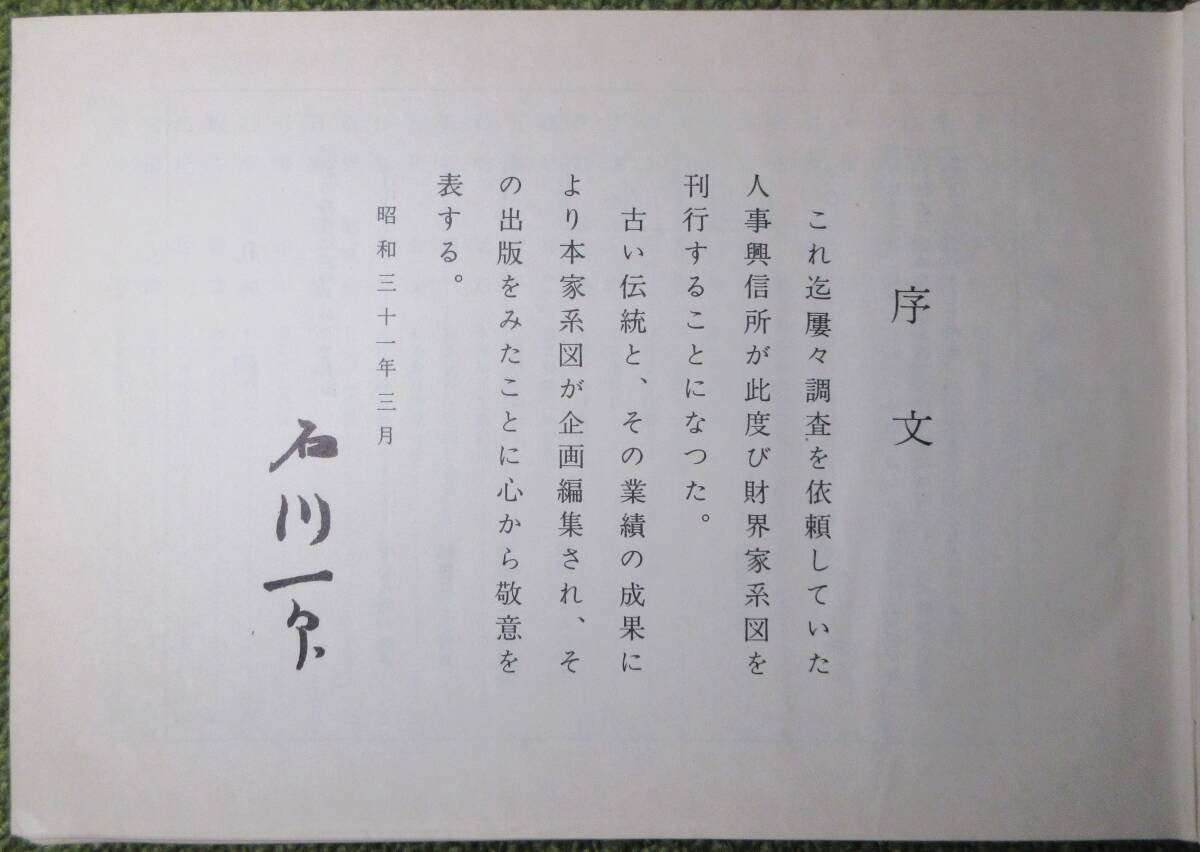 序文
これ迄屢々調査を依頼していた
人事興信所が此度び財界家系図を
刊行することになつた。
古い伝統と、その業績の成果に
より本家系図が企画編集され、そ
の出版をみたことに心から敬意を
表する。
昭和三十一年三月
石川一